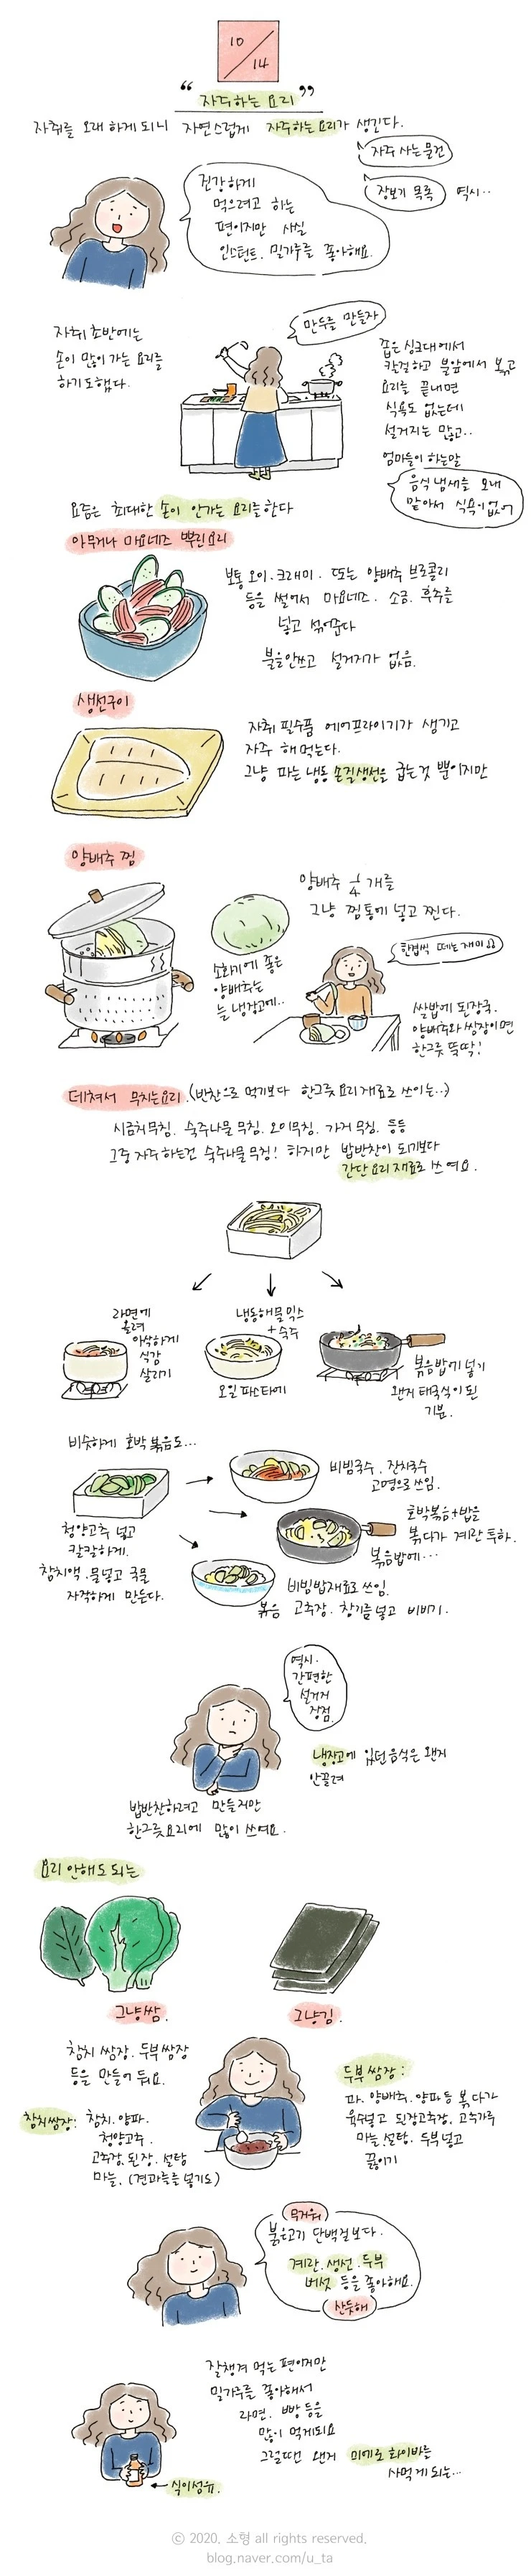 10
14
“자주하는 요리”
자취를 오래 하게 되니 자연스럽게 자주하는 요리가 생긴다.
자주 사는 물건
장보기 목록 역시..
건강하게
먹으려고 하는
편이지만 사실
인스턴트. 밀가루를 좋아해요.
자취 초반에는
손이 많이 가는 요리를
하기도 했다.
만두를 만들자
좁은 싱크대에서
칼질하고 불앞에서 볶고
요리를 끝내면
식욕도 없는데
설거지는 많고..
엄마들이 하는말
음식 냄새를 오래
맡아서 식욕이 없어
요즘은 최대한 손이 안가는 요리를 한다
아무거나 마요네즈 뿌린요리
보통 오이. 크래미. 또는 양배추 브로콜리
등을 썰어서 마요네즈. 소금. 후추를
넣고 섞어준다
불을 안쓰고 설거지가 없음.
생선구이
자취 필수품 에어프라이기가 생기고
자주 해 먹는다.
그냥 파는 냉동 손질생선을 굽는것 뿐이지만
양배추 찜
양배추 1/4 개를
그냥 찜통에 넣고 찐다.
소화에 좋은
양배추는
늘 냉장고에..
한겹씩 떼는 재미
쌀밥에 된장국.
양배추와 쌈장이면
한그릇 뚝딱!
데쳐서 무치는요리.(반찬으로 먹기보다 한그릇 요리 재료로 쓰이는..)
시금치무침. 숙주나물 무침. 오이무침. 가지 무침. 등등
그중 자주 하는건 숙주나물 무침! 하지만 밥반찬이 되기보다
간단 요리 재료로 쓰여요.
라면에
올려
아삭하게
식감
살리기
냉동해물믹스
+숙주
오일 파스타에
볶음밥에 넣기
왠지 태국식이 된
기분.
비슷하게 호박 볶음도...
청양고추 넣고
칼칼하게.
참치액. 물넣고 국물
자작하게 만든다.
비빔국수. 잔치국수
고명으로 쓰임.
호박볶음+밥을
볶다가 계란 투하.
볶음밥에...
비빔밥재료로 쓰임.
볶음 고추장. 참기름 넣고 비비기.
역시.
간편한
설거지
장점.
냉장고에 있던 음식은 왠지
안끌려
밥반찬하려고 만들지만
한그릇요리에 많이 쓰여요.
요리 안해도 되는
그냥쌈.
그냥김.
참치 쌈장. 두부 쌈장
등을 만들어 둬요.
참치쌈장: 참치. 양파.
청양고추.
고추장. 된장. 설탕
마늘. (견과류를 넣기도)
두부 쌈장:
파. 양배추. 양파 등 볶다가
육수넣고 된장고추장. 고추가루
마늘. 설탕. 두부 넣고
끓이기
무거워
붉은고기 단백질보다.
계란. 생선. 두부
버섯 등을 좋아해요.
산뜻해
잘챙겨 먹는 편이지만
밀가루를 좋아해서
라면. 빵 등을
많이 먹게되요
그럴때면 왠지 미에로 화이바를
사먹게 되는...
식이섬유.
© 2020. 소형 all rights reserved.
blog.naver.com/u_ta